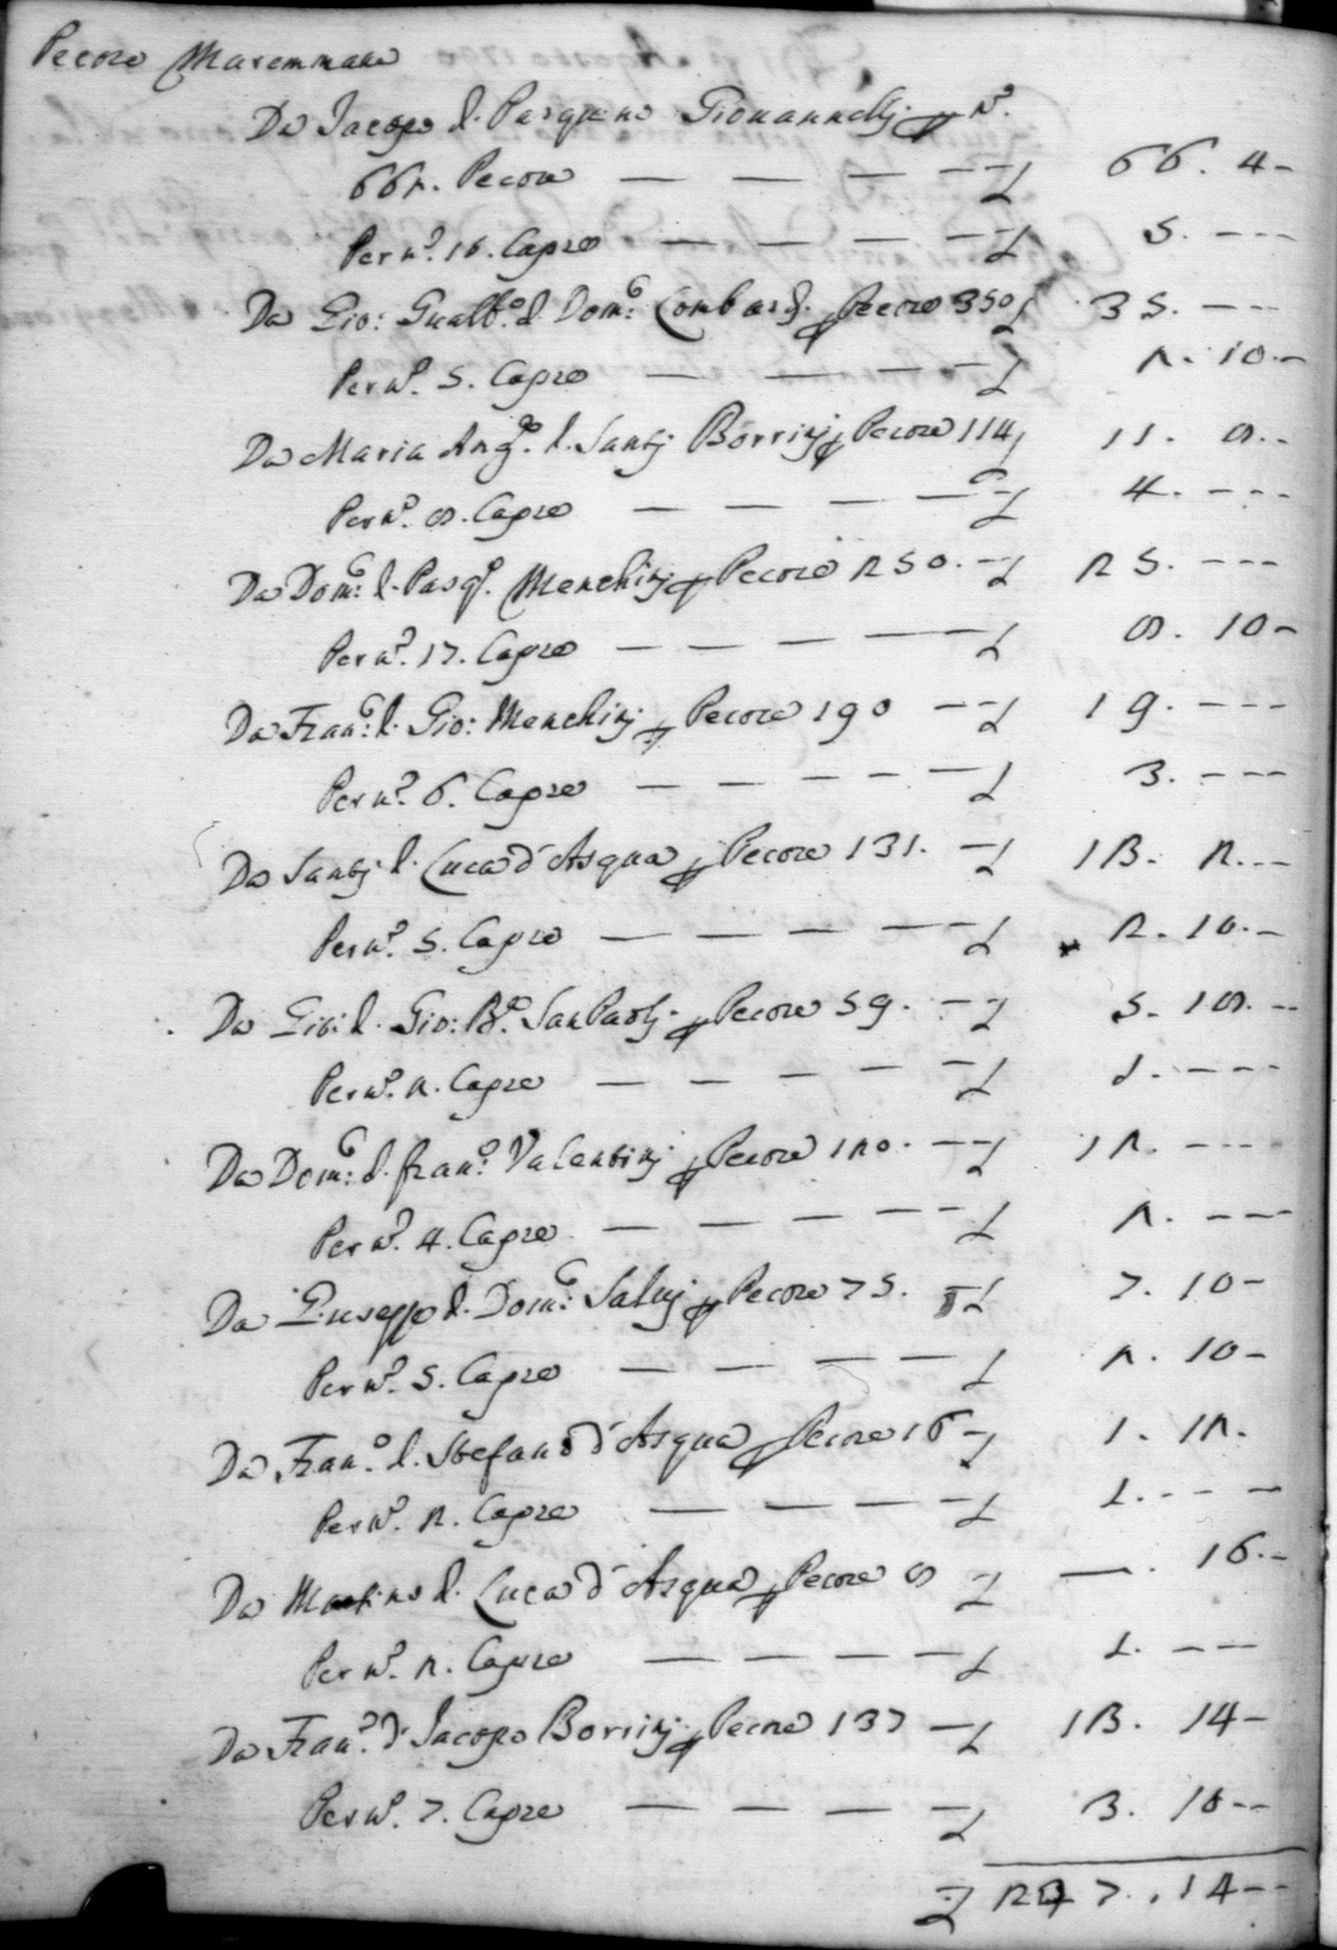 Pecore Maremmane
Da Jacopo d. Pasquino Giouannelli p n.º
662. Pecore — — — — £ 66. 4 -
Per n.º 10. Capre — — — — £ 5. - - -
Da Gio: Gualb.º d. Dom.º Lombardi p Pecore 350 £ 35. - - -
Per n.º 5. Capre — — — — £ 2. 10. -
Da Maria Ang.ª d. Santi Borrini p Pecore 114 £ 11. 8. -
Per n.º 8. Capre — — — — £ 4. - - -
Da Dom.º d. Pasq.º Menchini p Pecore 250. - £ 25. - - -
Per n.º 17. Capre — — — — £ 8. 10 -
Da Fran.º d. Gio: Menchini p Pecore 190 - - £ 19. - - -
Per n.º 6. Capre — — — — £ 3. - - -
Da Santi d. Luca d'Asqua p Pecore 131. - £ 13. 2. - -
Per n.º 5. Capre — — — — £ 2. 10. -
Da Gio: d. Gio: B.ª SanPaoli p Pecore 59. - £ 5. 18. -
Per n.º 2. Capre — — — — £ 1. - - -
Da Dom.º d. fran.º Valentini p Pecore 120. - - £ 12. - - -
Per n.º 4. Capre — — — — £ 2. - - -
Da Giuseppe d. Dom.º Salvi p Pecore 75. £ 7. 10 -
Per n.º 5. Capre — — — — £ 2. 10 -
Da Fran.º d. Stefano d'Asqua p Pecore 16 - £ 1. 12.
Per n.º 2. Capre — — — — £ 1. - - -
Da Martino d. Luca d'Asqua p Pecore 8 £ —. 16. -
Per n.º 2. Capre — — — — £ 1. - -
Da Fran.º d'Jacopo Borrini p Pecore 137 — £ 13. 14 -
Per n.º 7. Capre — — — — £ 3. 10 - -
£ 247. 14 - -